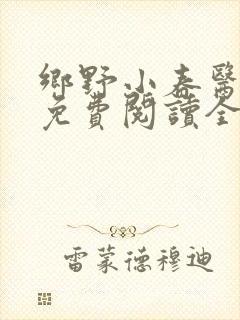 鄉野小春醫
免費閱讀全
雷蒙德穆迪